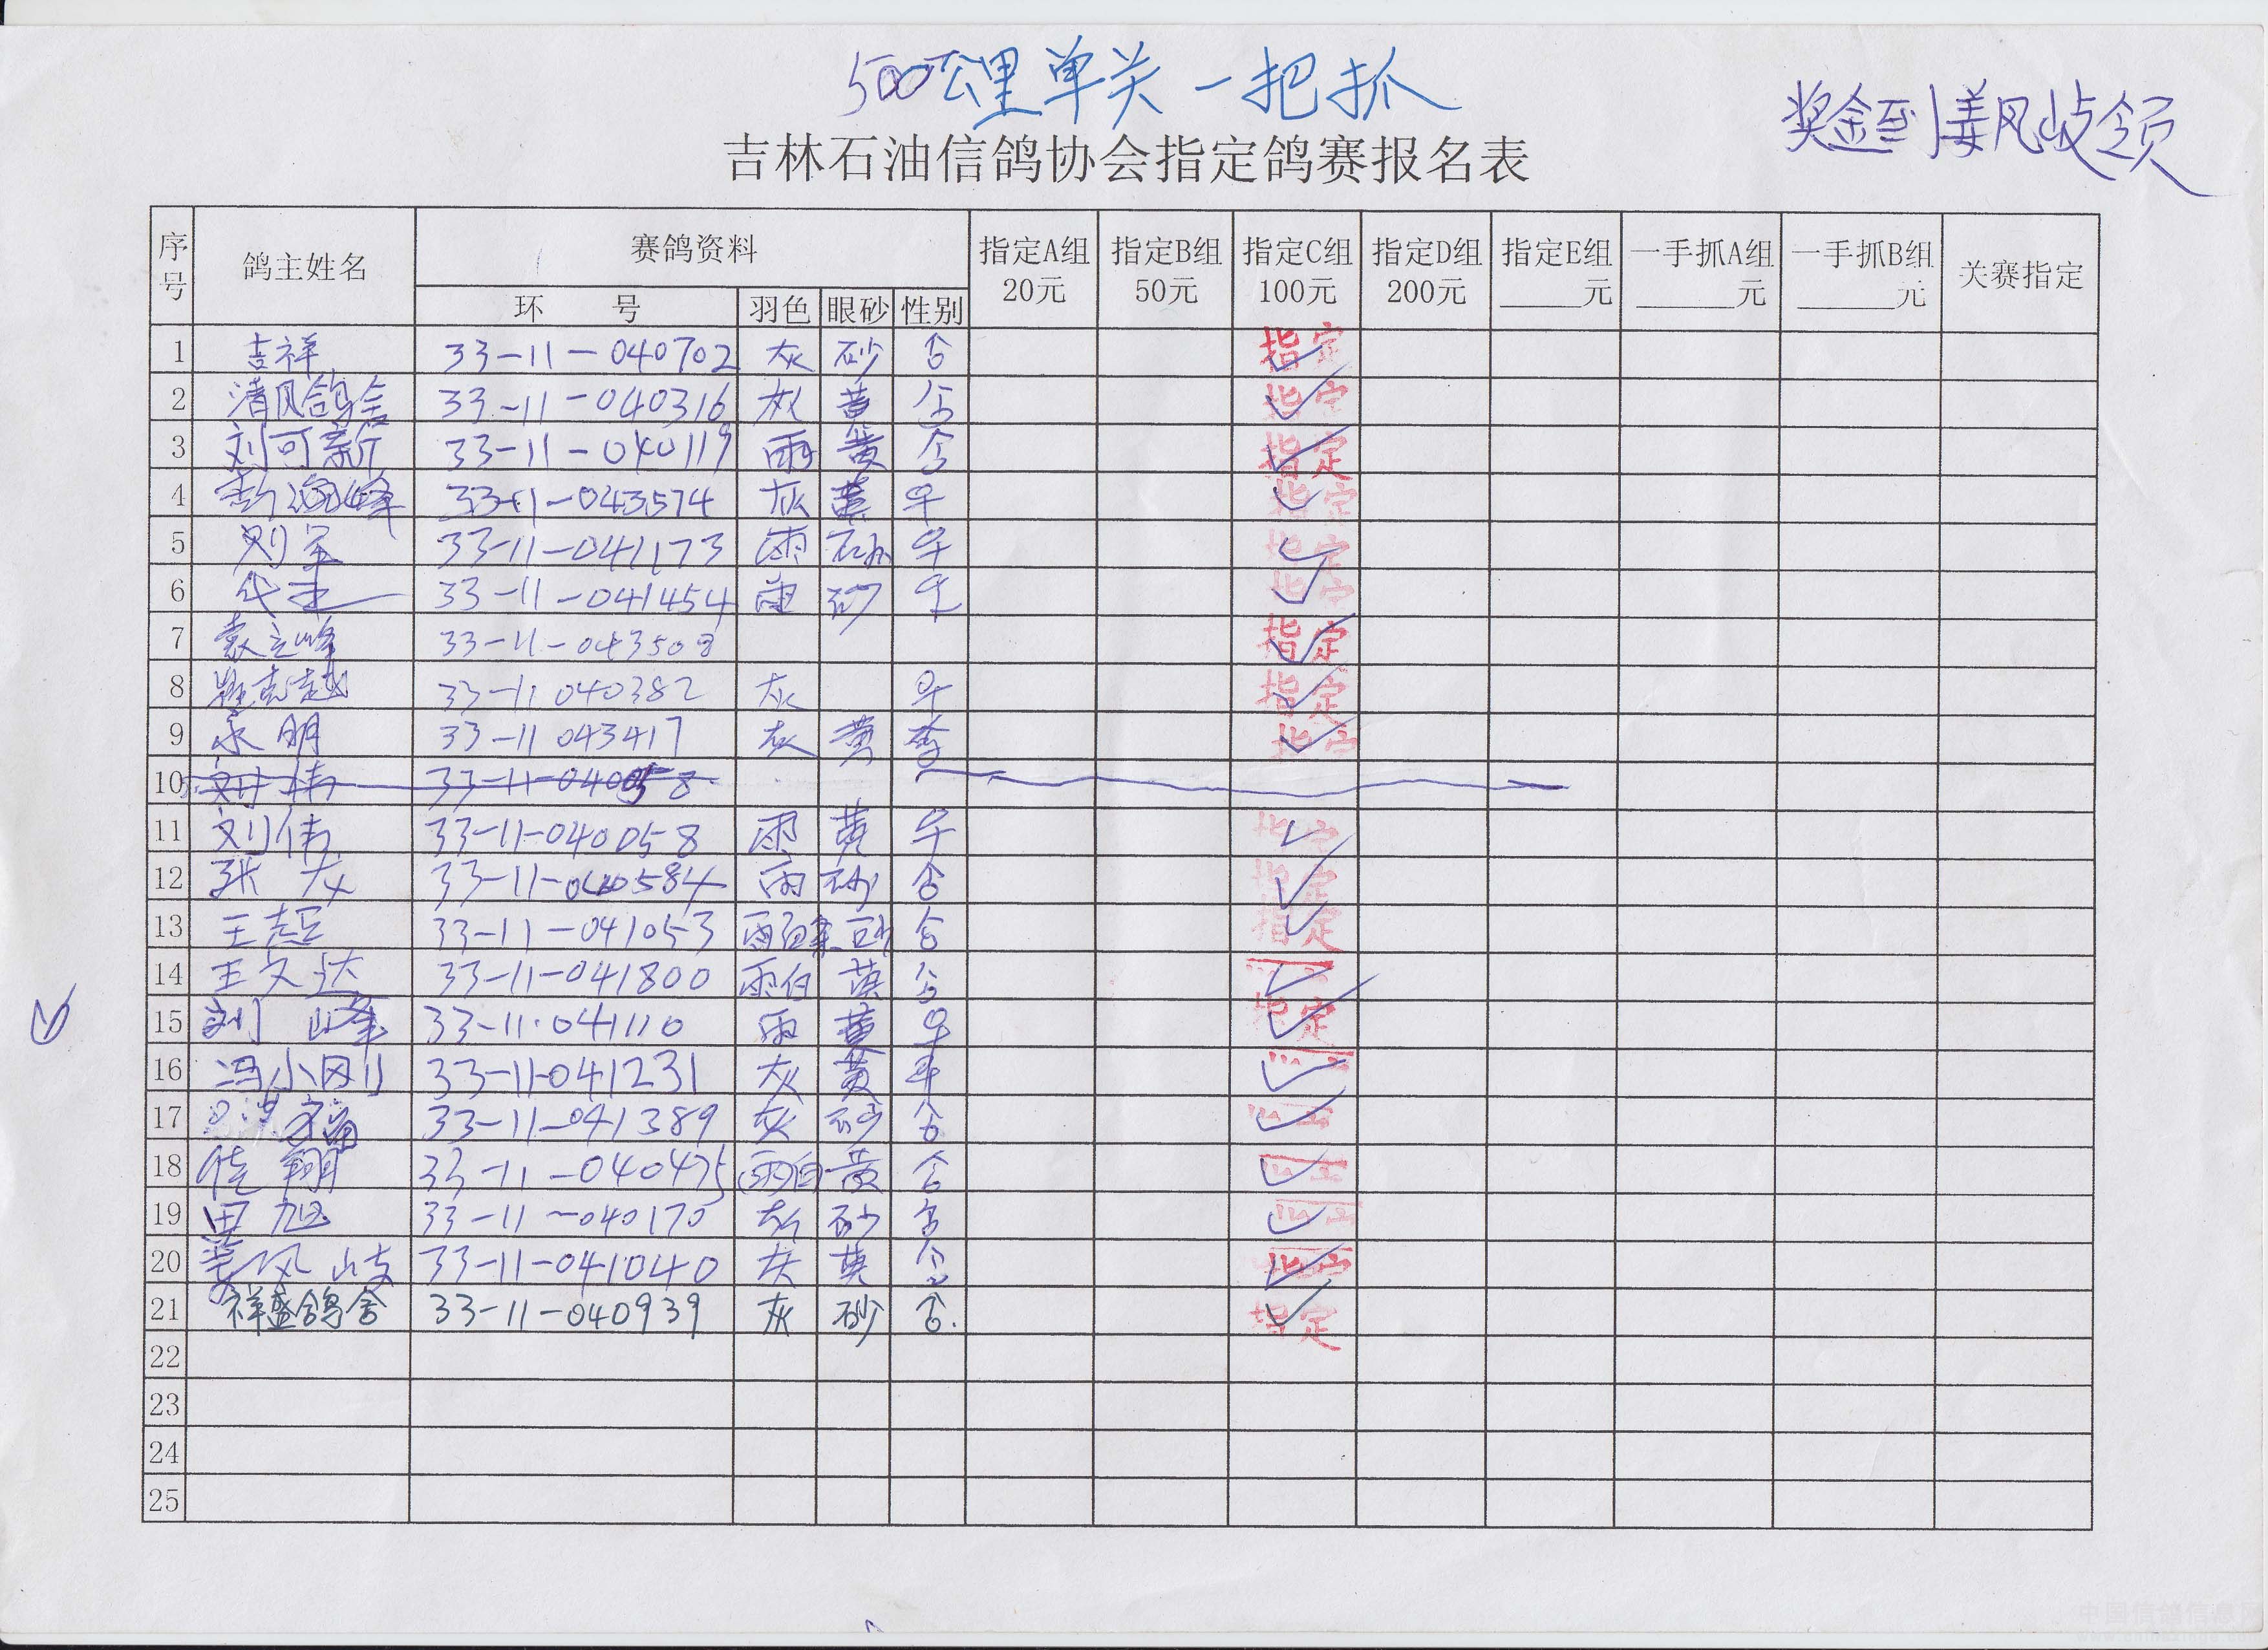 500公里单关一把抓
奖金到姜凤岐领
吉林石油信鸽协会指定鸽赛报名表
序号 鸽主姓名 赛鸽资料 指定A组 20元 指定B组 50元 指定C组 100元 指定D组 200元 指定E组 ____元 一手抓A组 ____元 一手抓B组 ____元 关赛指定
环 号 羽色 眼砂 性别
1 吉祥 33-11-040702 灰 砂 指定 ✓
2 清风鸽舍 33-11-040316 灰 黄 指定 ✓
3 刘可新 33-11-040119 雨 黄 指定 ✓
4 33-11-043574 灰 黄 ♀ 指定 ✓
5 刘军 33-11-041173 雨 砂 ♀ 指定 ✓
6 33-11-041454 雨 砂 ♀ 指定 ✓
7 袁立峰 33-11-043508 指定 ✓
8 33-11 040382 灰 ♀ 指定 ✓
9 永明 33-11 043417 灰 黄 指定 ✓
10 刘伟 33-11-040058
11 刘伟 33-11-040058 雨 黄 ♀ 指定 ✓
12 张友 33-11-040584 雨 砂 指定 ✓
13 王志臣 33-11-041053 雨白条 砂 指定 ✓
14 王文达 33-11-041800 雨白 黄 ✓
15 刘峰 33-11-041110 雨 黄 ♀ 指定 ✓
16 冯小刚 33-11-041231 灰 黄 ✓
17 33-11-041389 灰 砂 ✓
18 33-11-040475 雨白 黄 ✓
19 田旭 33-11-040170 灰 砂 ✓
20 姜凤岐 33-11-041040 灰 黄 指定 ✓
21 祥盛鸽舍 33-11-040939 灰 砂 指定 ✓
22
23
24
25
中国信鸽信息网